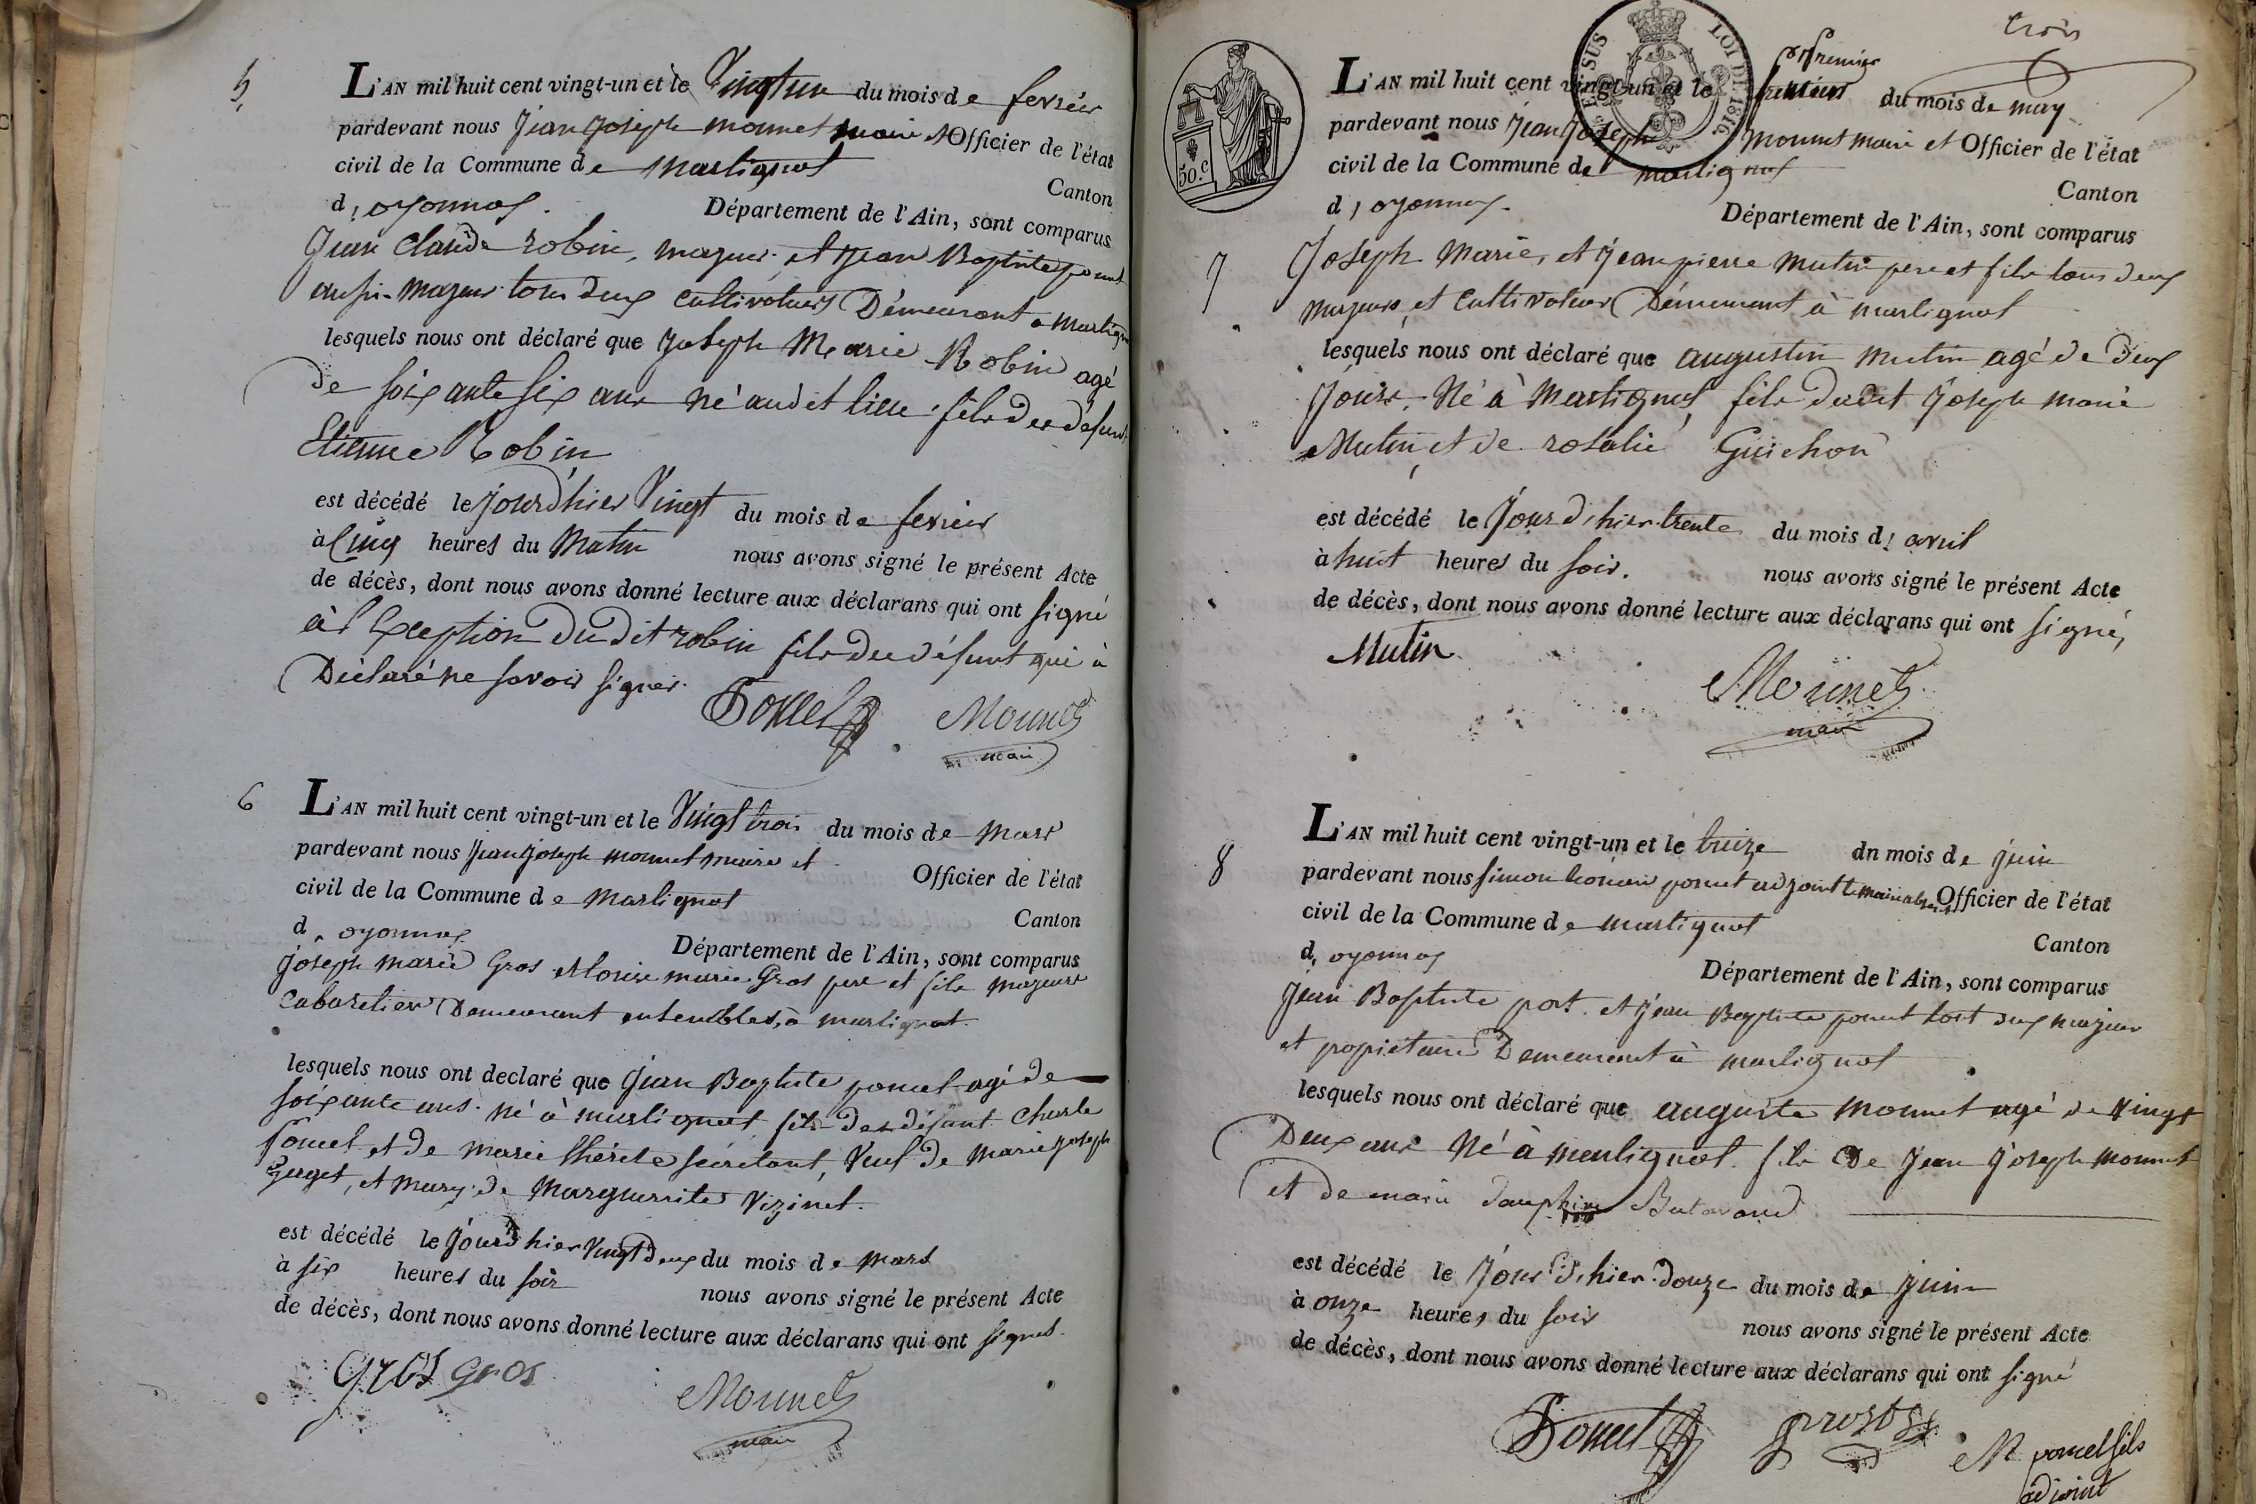 5
L'AN mil huit cent vingt-un et le Vingt un du mois de fevrier
pardevant nous Jean Joseph monnet maire et Officier de l'état
civil de la Commune de Martignat
Canton
d, oyonnas.
Département de l'Ain, sont comparus
Jean Claude robin, majeur et Jean Baptiste poncet
aussi majeur tous deux cultivateurs Demeurant a Martignat
lesquels nous ont déclaré que Joseph Marie Robin agé
de soixante six ans né audit lieu, fils de défunt
Etienne Robin
est décédé le jourd'hier Vingt du mois de fevrier
à Cinq heures du Matin
nous avons signé le présent Acte
de décès, dont nous avons donné lecture aux déclarans qui ont signé
à l'exception du dit robin fils du défunt qui à
Déclaré ne savoir signer.
Poncet Monnet
maire
6
L'AN mil huit cent vingt-un et le Vingt trois du mois de Mars
pardevant nous Jean Joseph monnet maire et Officier de l'état
civil de la Commune de Martignat
Canton
d, oyonnas
Département de l'Ain, sont comparus
Joseph Marie Gros et marie Gros pere et fils majeurs
Cabaretier Demeurant ensembles, à martignat.
lesquels nous ont declaré que Jean Baptiste poncet agé de
soixante ans. né à martignat fils de défunt Charle
Poncet et de marie thérése secretant, Veuf de Marie Joseph
et mary de Marguerite Vizinet.
est décédé le Jourd'hier Vingt Deux du mois de Mars
à six heures du soir
nous avons signé le présent Acte
de décès, dont nous avons donné lecture aux déclarans qui ont signés.
gros gros
Monnet
maire
trois
50.c
LOI DE 1816
L'AN mil huit cent vingt-un et le premier du mois de may
pardevant nous Jean Joseph monnet maire et Officier de l'état
civil de la Commune de martignat
Canton
d, oyonnas.
Département de l'Ain, sont comparus
7
Joseph Marie, et Jean pierre mutin pere et fils tous deux
majeurs et Cultivateur Demeurant à martignat
lesquels nous ont déclaré que augustin mutin agé de deux
Jours. Né à Martignat, fils dudit Joseph marie
Mutin, et de rosalie Guichon
est décédé le Jour d'hier trente du mois d, avril
à huit heures du soir.
nous avons signé le présent Acte
de décès, dont nous avons donné lecture aux déclarans qui ont signé,
Mutin
Monnet
maire
8
L'AN mil huit cent vingt-un et le treize dn mois de juin
pardevant nous Simon poncet adjoint le maire absent Officier de l'état
civil de la Commune de martignat
Canton
d, oyonnas
Département de l'Ain, sont comparus
Jean Baptiste prost et Jean Baptiste poncet tout deux majeur
et propietaire Demeurant à martignat
lesquels nous ont déclaré que auguste Monnet agé de Vingt
Deux ans Né à martignat fils De Jean Joseph monnet
et de marie Dauphine Butavand
est décédé le Jour d'hier douze du mois de Juin
à onze heures du soir
nous avons signé le présent Acte
de décès, dont nous avons donné lecture aux déclarans qui ont signé
Poncet prost
poncet fils
adjoint